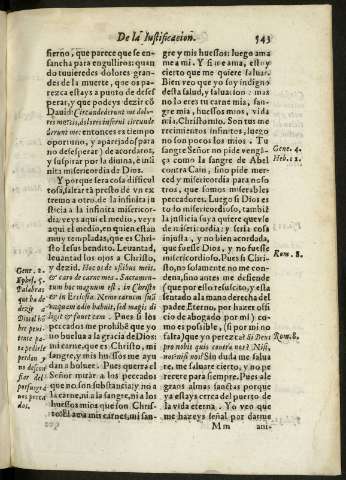 De la Iustificacion. 543
fierno, que parece que se en-
sancha para engulliros: quan
do tuuieredes dolores gran-
des de la muerte, que os pa-
rezca estays a punto de deses
perar, y que podeys dezir cõ
Dauid: Circundederunt me dolo-
res mortis, dolores inferni circunde
derunt me: entonces es tiempo
oportuno, y aparejados para
no desesperar, y de acordaros,
y suspirar por la diuina, è infi
nita misericordia de Dios.
Y porque sera cosa dificul
tosa, saltar tã presto de vn ex
tremo a otro, de la infinita ju
sticia a la infinita misericor-
dia: veys aqui el medio, veys
aqui el medio, en quien estan
muy templadas, que es Chri-
sto Iesus bendito. Leuantad,
leuantad los ojos a Christo,
y dezid. Hoc os de ossibus meis,
& caro de carne mea. Sacramen-
tum hoc magnum est. in Christo
& in Ecclesia. Nemo carnem suã
vnquam odio habuit, sed magis di
ligit & fouet eam. Pues si los
peccados me prohibẽ que yo
no buelua a la gracia de Dios:
mi carne, que es Christo, mi
sangre, y mis huessos me ayu
dan a boluer. Pues querra el
Señor mirar a los peccados
que no son substancia, y no a
la carne, ni a la sangre, ni a los
huessos mios que son Chris-
to? El ama mi carne, mi san-
Gene. 2.
Ephes. 5.
Palabras
que ha de
dezir a
Dios el hõ
bre peni-
tente pa-
ra pedirle
perdon y
no descon
fiar del
por sus gra
ues pecca
dos.
gre y mis huessos: luego ama
me a mi. Y si me ama, estoy
cierto que me quiere saluar.
Bien veo que yo soy indigno
desta salud, y saluacion: mas
no lo eres tu carne mia, san-
gre mia, huessos mios, vida
mia Iesu Christo mio. Son tus me
recimientos infinitos, luego
no son pocos los mios. Tu
sangre Señor no pide vengã-
ça como la sangre de Abel
contra Cain, sino pide mer-
ced y misericordia para noso
tros, que somos miserables
peccadores. Luego si Dios es
todo misericordioso, tambiẽ
la justicia suya quiere que vse
de misericordia: y seria cosa
injusta, y no bien acordada,
que fuesse Dios, y no fuesse
misericordioso. Pues si Chri-
sto, no solamente no me con-
dena, sino antes me defiende
(que por ello resuscito, y esta
sentado a la mano derecha del
padre Eterno, por hazer offi-
cio de abogado por mi) co-
mo es possible, (si por mi no
falta) que yo perezca? si Deus
pro nobis quis contra nos? Nisi,
nos? nisi nos? Sin duda me salua
re, me saluare cierto, y no pe
recere para siempre. Pues ale
graos almas sanctas porque
ya estays cerca del puerto de
la vida eterna. Yo veo que
me hareys señal por darme
Gene. 4.
Heb. 12.
Rom. 8.
Rom. 8.
Mm ani-